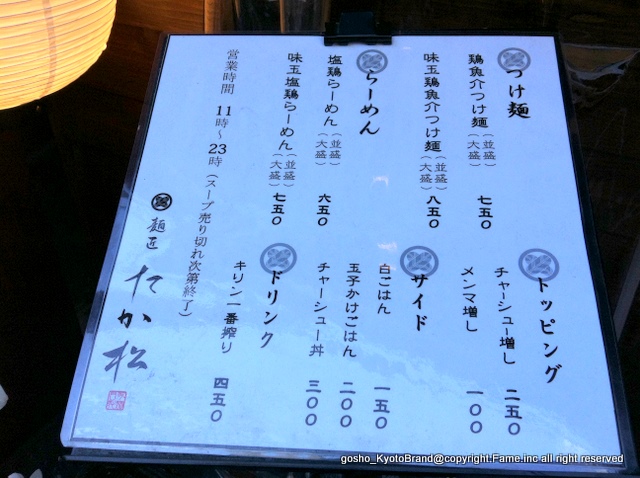 つけ麺
鶏魚介つけ麺(並盛)(大盛) 七五〇
味玉鶏魚介つけ麺(並盛)(大盛) 八五〇
らーめん
塩鶏らーめん(並盛)(大盛) 六五〇
味玉塩鶏らーめん(並盛)(大盛) 七五〇
トッピング
チャーシュー増し 二五〇
メンマ増し 一〇〇
サイド
白ごはん 一五〇
玉子かけごはん 二〇〇
チャーシュー丼 三〇〇
ドリンク
キリン一番搾り 四五〇
営業時間 11時〜23時(スープ売り切れ次第終了)
麺匠 たか松
gosho_KyotoBrand@copyright.Fame.inc all right reserved